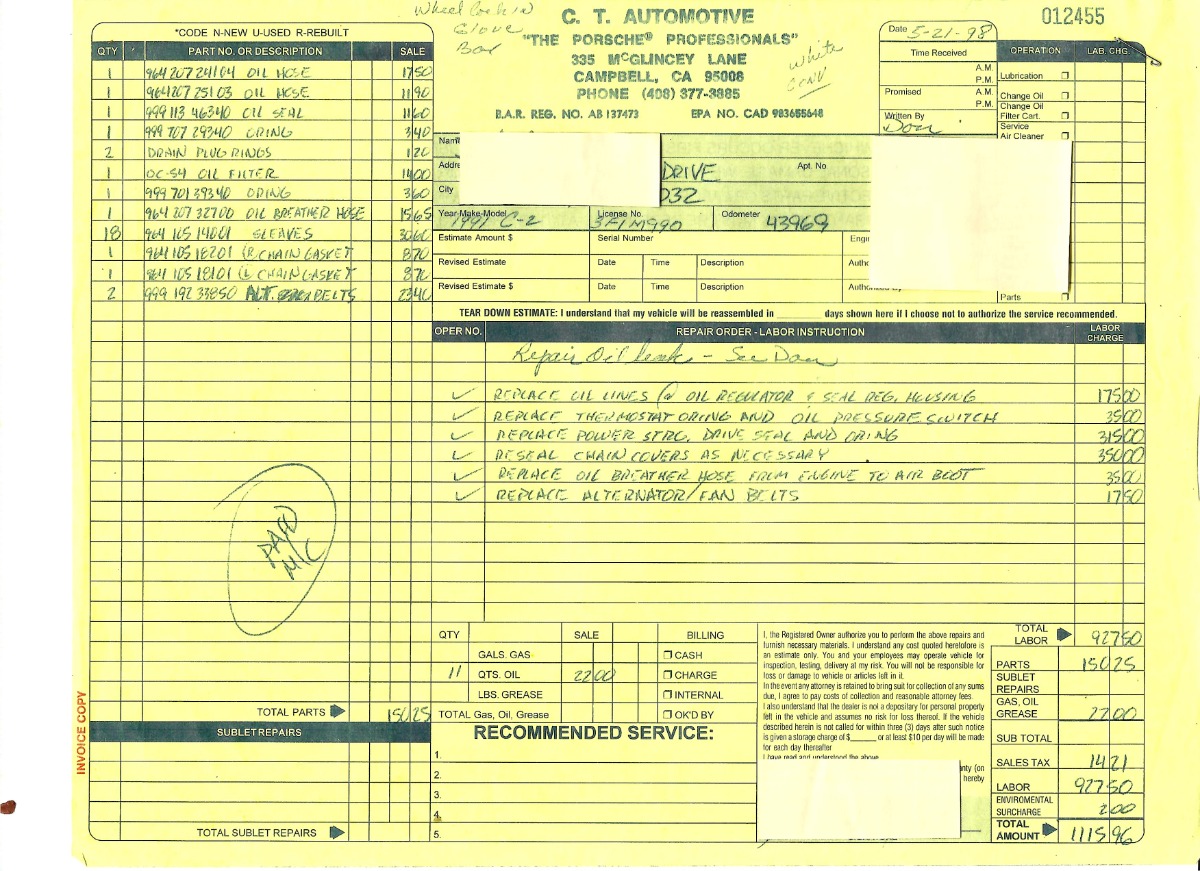 Wheel Lock in
Glove
Box
C. T. AUTOMOTIVE
"THE PORSCHE® PROFESSIONALS"
335 McGLINCEY LANE
CAMPBELL, CA 95008
PHONE (408) 377-3885
B.A.R. REG. NO. AB 137473 EPA NO. CAD 983655648
White
conv
012455
Date 5-21-98
Time Received
A.M.
P.M.
Promised A.M.
P.M.
Written By
Don
OPERATION LAB. CHG.
Lubrication
Change Oil
Change Oil
Filter Cart.
Service
Air Cleaner
Parts
*CODE N-NEW U-USED R-REBUILT
QTY PART NO. OR DESCRIPTION SALE
1 964 207 241 04 OIL HOSE 17 50
1 964 207 251 03 OIL HOSE 11 90
1 999 113 463 40 OIL SEAL 11 60
1 999 707 293 40 ORING 3 40
2 DRAIN PLUG RINGS 1 20
1 OC-54 OIL FILTER 14 00
1 999 701 393 40 ORING 3 60
1 964 207 327 00 OIL BREATHER HOSE 15 65
18 964 105 140 01 SLEAVES 30 60
1 964 105 182 01 (R CHAIN GASKET 8 70
1 964 105 181 01 (L CHAIN GASKET 8 70
2 999 192 338 50 ALT. BELTS 23 40
Name
Addre
DRIVE
Apt. No
City
032
Year-Make-Model 1991 C-2
License No. 3FIM990
Odometer 43969
Estimate Amount $ Serial Number Engi
Revised Estimate Date Time Description Autho
Revised Estimate $ Date Time Description Autho
TEAR DOWN ESTIMATE: I understand that my vehicle will be reassembled in ________ days shown here if I choose not to authorize the service recommended.
OPER NO. REPAIR ORDER - LABOR INSTRUCTION LABOR CHARGE
Repair Oil leak - See Don
✓ REPLACE OIL LINES @ OIL REGULATOR & SEAL REG. HOUSING 175 00
✓ REPLACE THERMOSTAT ORING AND OIL PRESSURE SWITCH 35 00
✓ REPLACE POWER STRG. DRIVE SEAL AND ORING 315 00
✓ RESEAL CHAIN COVERS AS NECESSARY 350 00
✓ REPLACE OIL BREATHER HOSE FROM ENGINE TO AIR BOOT 35 00
✓ REPLACE ALTERNATOR/FAN BELTS 17 50
PAID
M/C
INVOICE COPY
TOTAL PARTS 150 25
SUBLET REPAIRS
TOTAL SUBLET REPAIRS
QTY SALE BILLING
GALS. GAS CASH
11 QTS. OIL 22 00 CHARGE
LBS. GREASE INTERNAL
TOTAL Gas, Oil, Grease OK'D BY
RECOMMENDED SERVICE:
1.
2.
3.
4.
5.
I, the Registered Owner authorize you to perform the above repairs and
furnish necessary materials. I understand any cost quoted heretofore is
an estimate only. You and your employees may operate vehicle for
inspection, testing, delivery at my risk. You will not be responsible for
loss or damage to vehicle or articles left in it.
In the event any attorney is retained to bring suit for collection of any sums
due, I agree to pay costs of collection and reasonable attorney fees.
I also understand that the dealer is not a depositary for personal property
left in the vehicle and assumes no risk for loss thereof. If the vehicle
described herein is not called for within three (3) days after such notice
is given a storage charge of $_____ or at least $10 per day will be made
for each day thereafter
I have read and understood the above
nty (on
hereby
TOTAL LABOR 927 50
PARTS 150 25
SUBLET REPAIRS
GAS, OIL GREASE 22 00
SUB TOTAL
SALES TAX 14 21
LABOR 927 50
ENVIROMENTAL SURCHARGE 2 00
TOTAL AMOUNT 1115 96